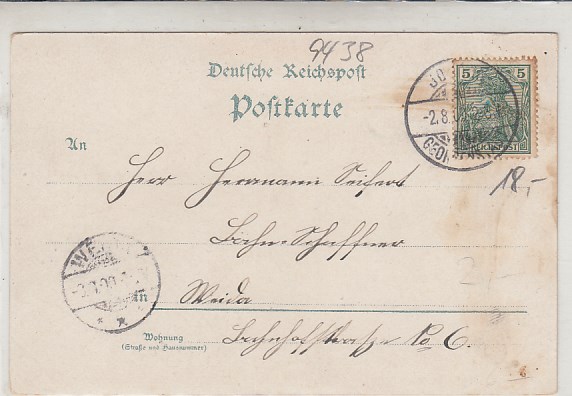 9438
Deutsche Reichspost
Postkarte
5 5
REICHSPOST
-2.8.0
An
Herr Herrmann Seifert
18,-
Bahn-Schaffner
WE
in Weida
Wohnung
(Straße und Hausnummer)
Bahnhofstraße No 6.
6